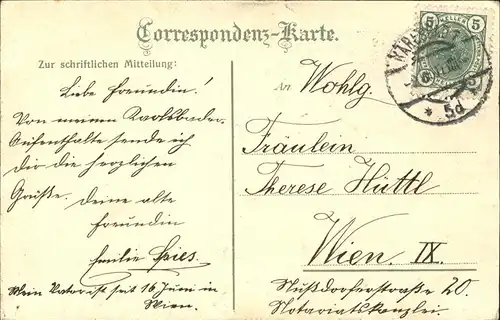 Correspondenz-Karte.
Zur schriftlichen Mitteilung:
Liebe Freundin!
Von meinem Karlsbader-
Aufenthalte sende ich
dir die herzlichen
Grüße. Deine alte
Freundin
Emilie Spies.
Mein Vater ist seit 16 Juni in
Wien.
An Wohlg.
Fräulein
Therese Hüttl
Wien. IX.
Nußdorferstraße 20.
Notariatskanzlei.
5 HELLER 5
* 5d